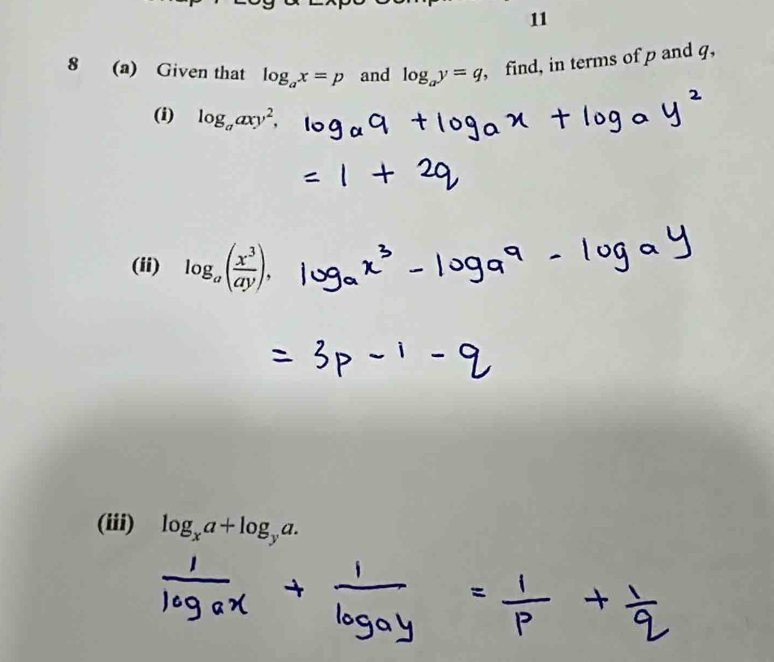 11
8 (a) Given that logₐx = p and logₐy = q, find, in terms of p and q,
(i) logₐaxy², logₐa + logₐx + logₐy²
= 1 + 2q
(ii) logₐ(x³/ay), logₐx³ - logₐa - logₐy
= 3p - 1 - q
(iii) logₓa + log_y a.
1/logₐx + 1/logₐy = 1/p + 1/q